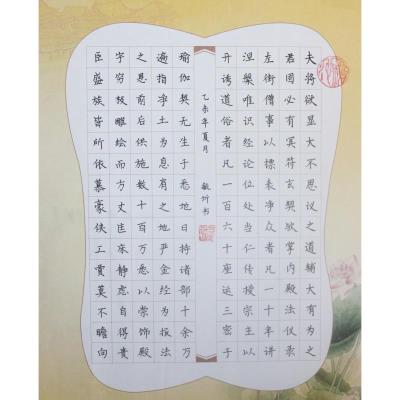 夫将欲显大不思议之道辅大有为之
君固必有冥符玄契欤掌内殿法仪录
左街僧事以标表净众者凡一十年讲
涅槃唯识经论位处当仁传授宗主以
开诱道俗者凡一百六十座运三密于
乙未年夏月 敏书
瑜伽契无生于悉地日持诸部十余万
遍指净土为息肩之地严金经为报法
之恩前后供施数十百万悉以崇饰殿
宇穷极雕绘而方丈匡床静虑自得贵
臣盛族皆所依慕豪侠工贾莫不瞻向